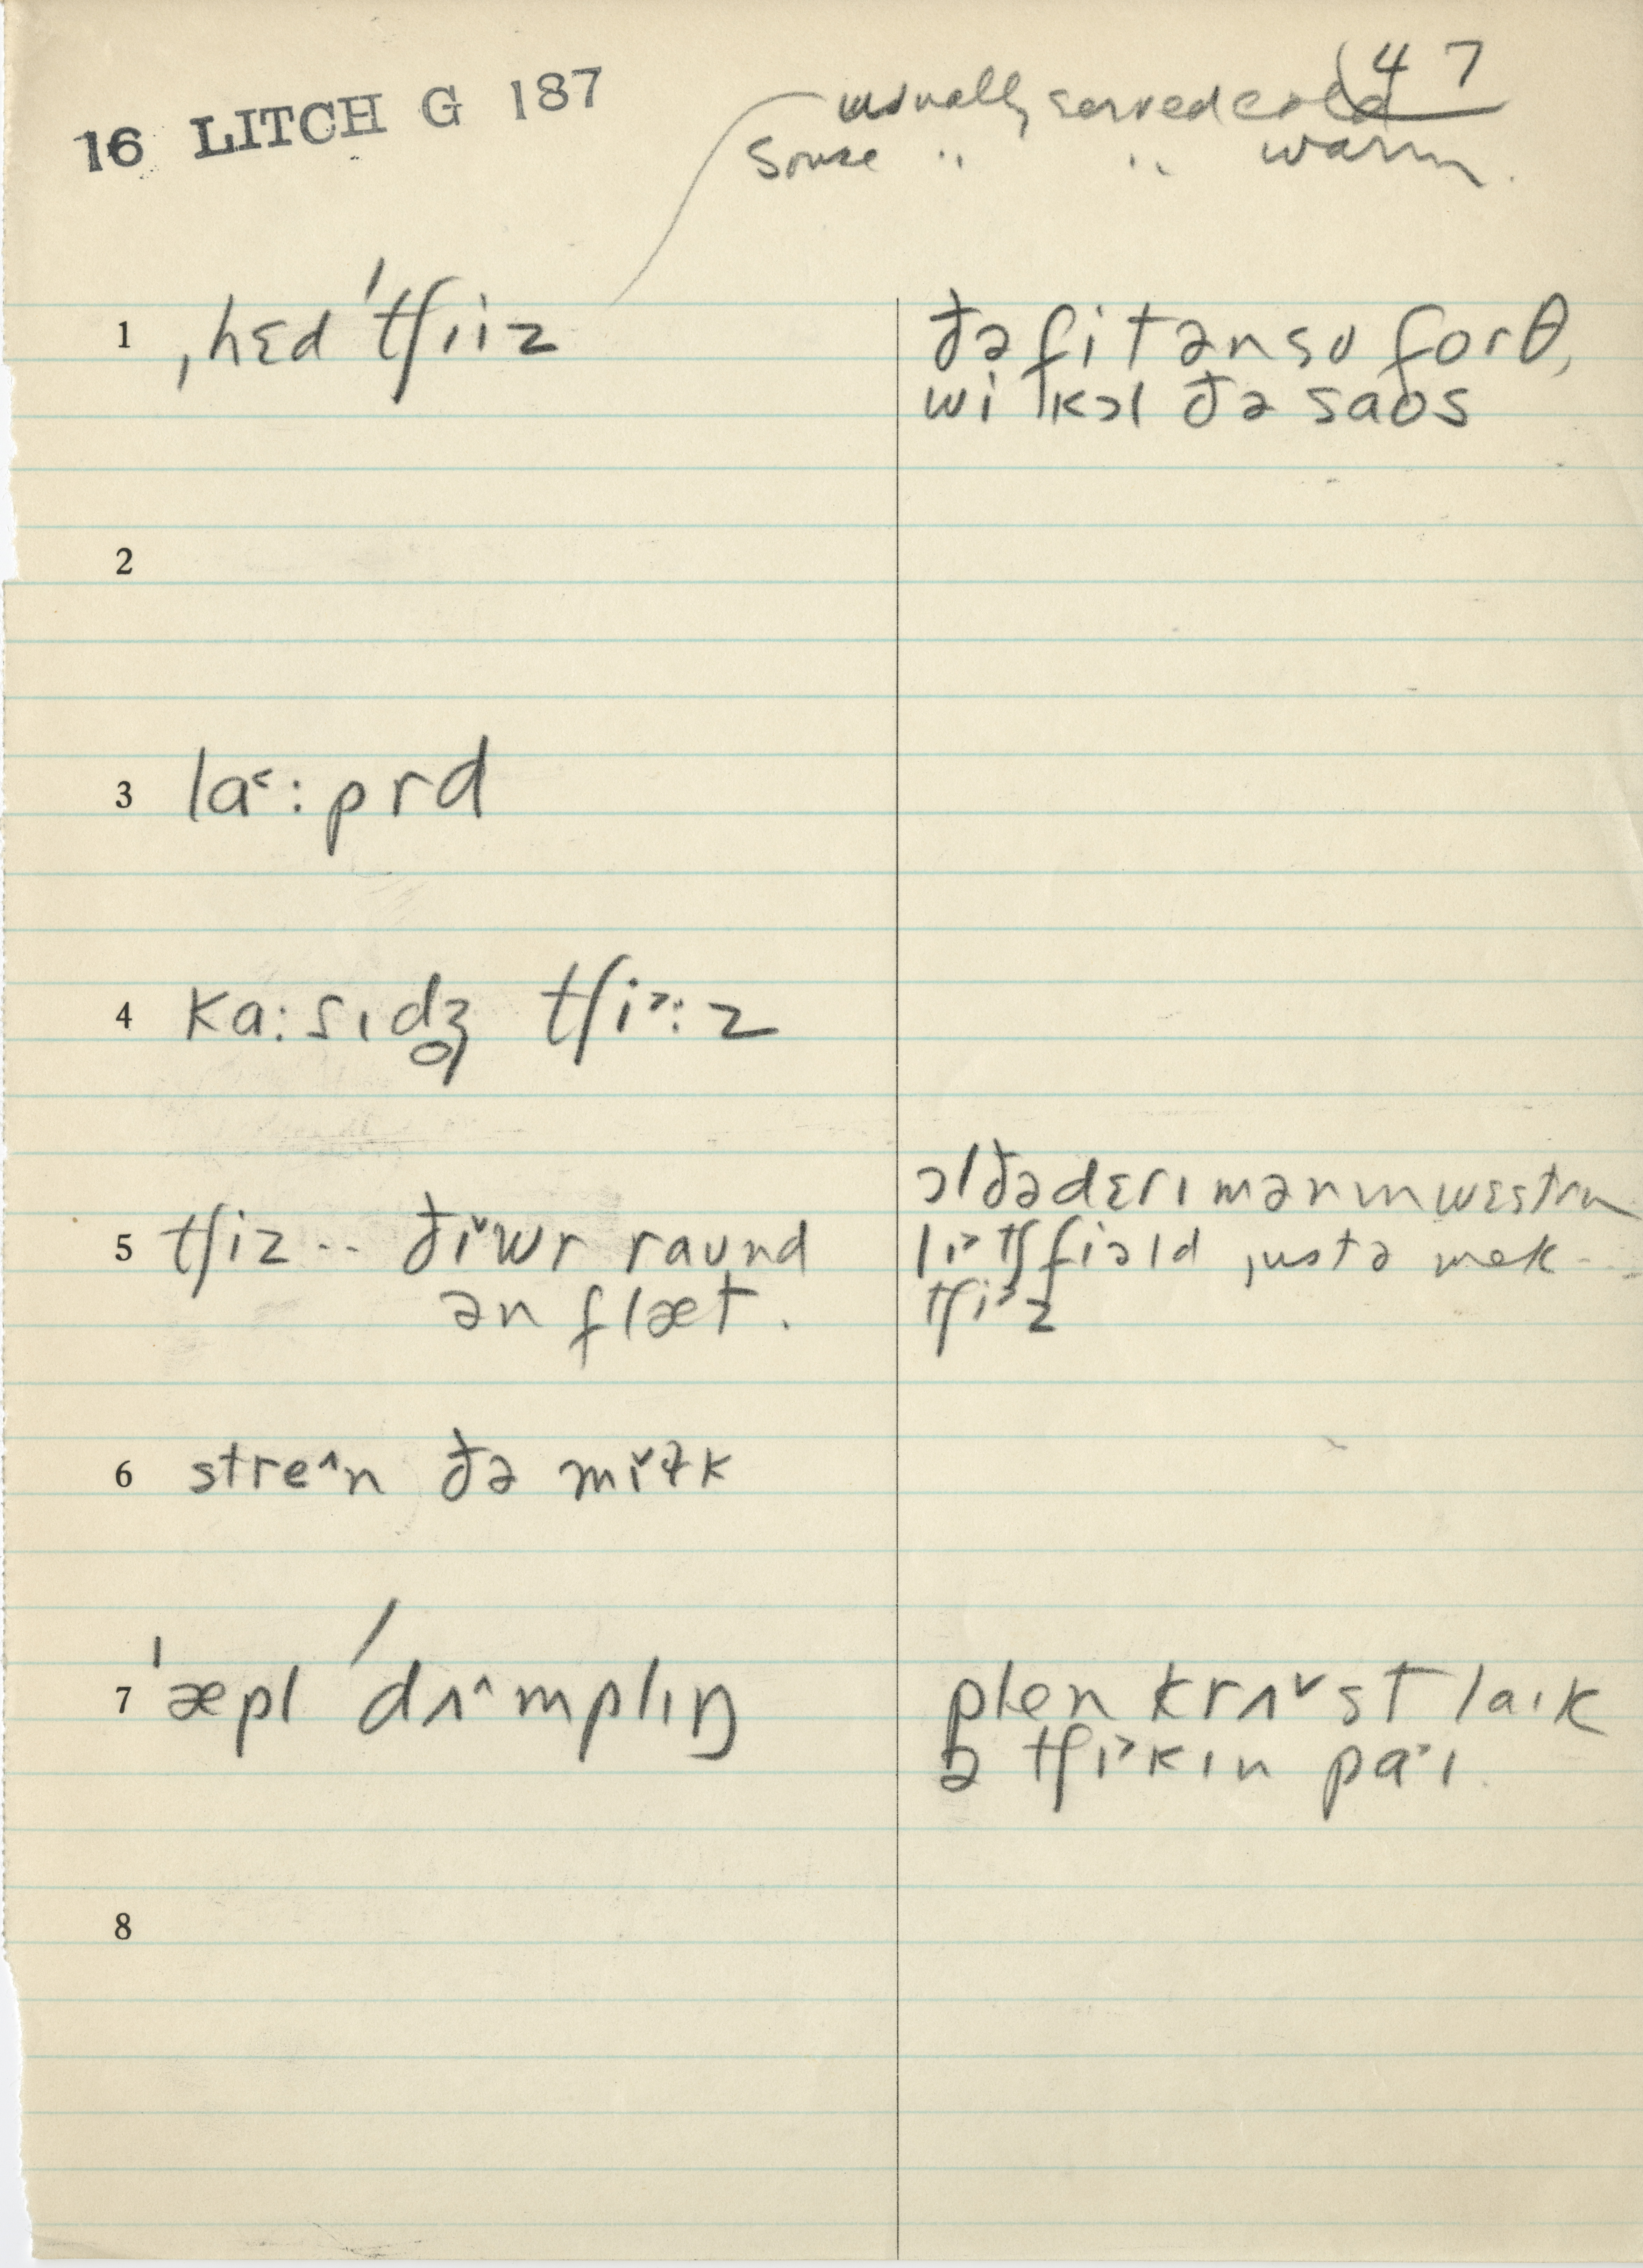 47
16 LITCH G 187
usually served cold
Souse " " warm.
1 ˌhɛd ˈtʃiiz
ðə fit ən so forθ,
wi kɔl ðə saos
2
3 la˂:prd
4 ka:sɪdʒ̥ tʃi˃:z
5 tʃiz -- ðɪˇwr raʊnd
ən flæt.
ɔl ðə dɛrɪmən ɪn wɛstrn
lɪ˃tʃfiəld justə mek --
tʃi˃z
6 stre^n ðə mɪˇɫk
7 ˈæpl ˈdʌ^mplɪŋ
plen krʌˇst laɪk
ə tʃɪ˃kɪn pa˃ɪ.
8